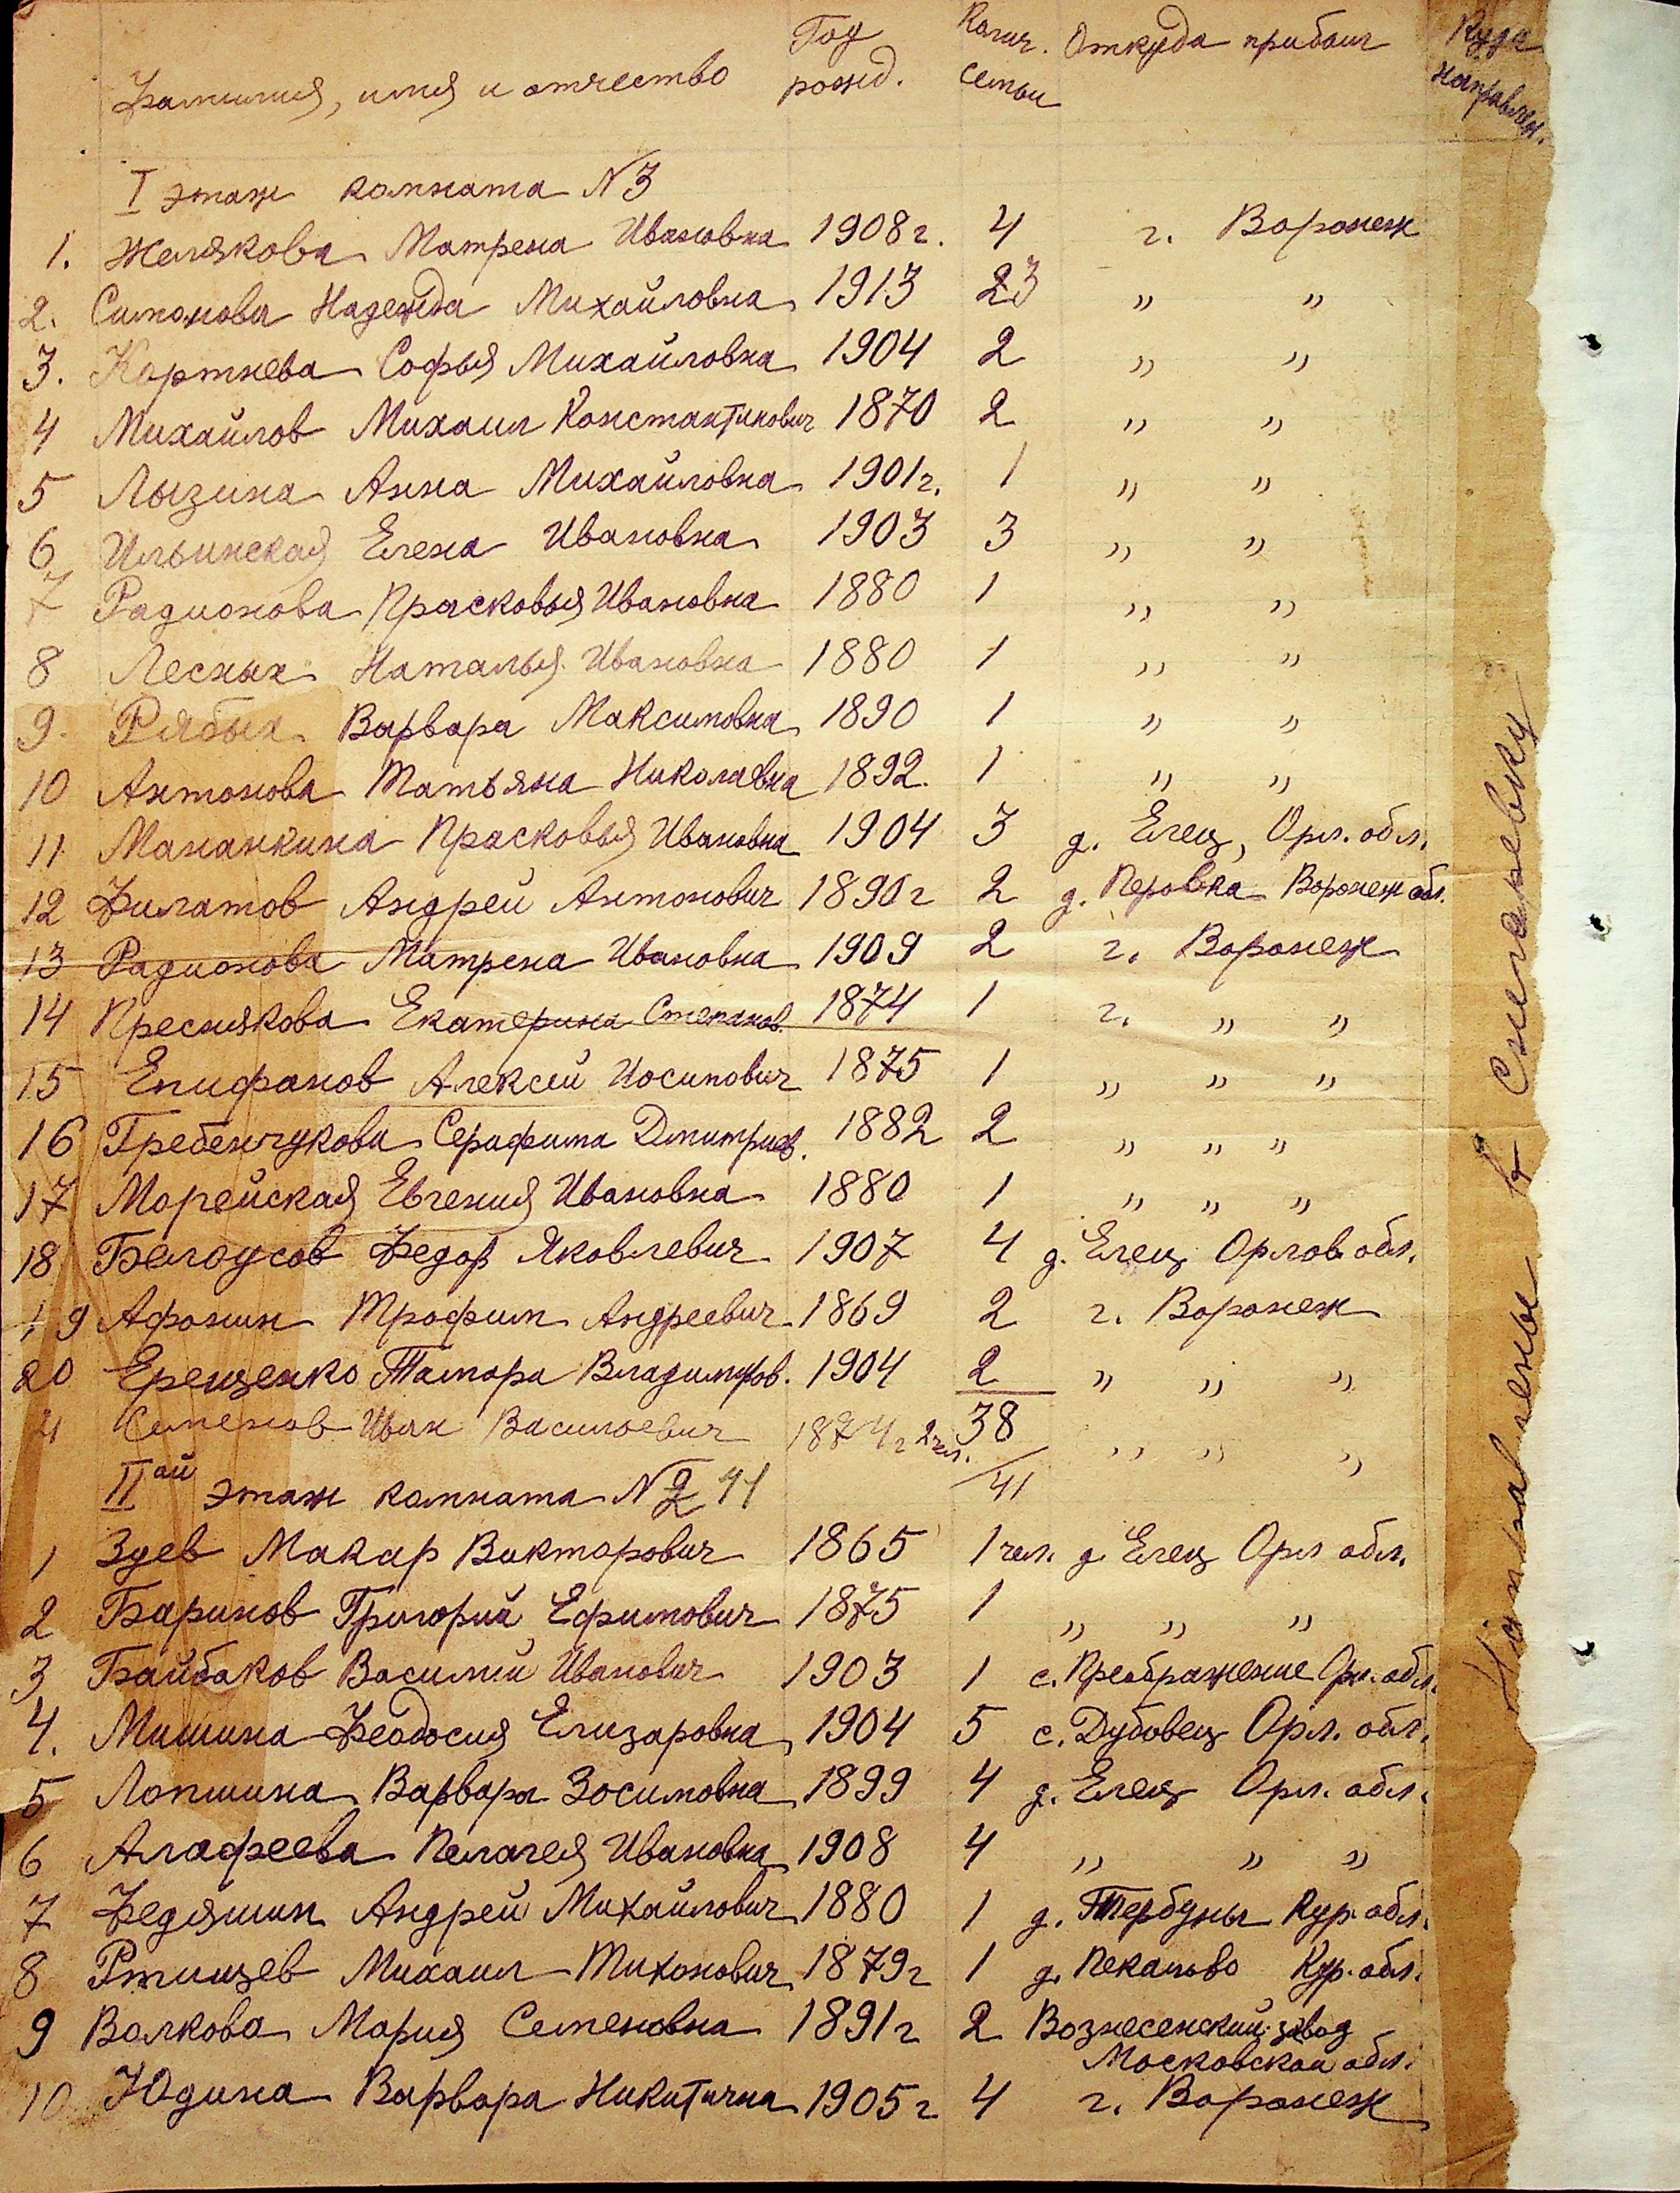 Фамилия, имя и отчество Год рожд. Колич. семьи Откуда прибыл Куда направлен.
I этаж комната N 3
1. Желякова Матрена Ивановна 1908 г. 4 г. Воронеж
2. Симонова Надежда Михайловна 1913 23 " "
3. Кортнева Софья Михайловна 1904 2 " "
4 Михайлов Михаил Константинович 1870 2 " "
5 Лызина Анна Михайловна 1901 г. 1 " "
6 Ильинская Елена Ивановна 1903 3 " "
7 Радионова Прасковья Ивановна 1880 1 " "
8 Лесных Наталья Ивановна 1880 1 " "
9. Рябых Варвара Максимовна 1890 1 " "
10 Антонова Татьяна Николаевна 1892. 1 " "
11 Мананкина Прасковья Ивановна 1904 3 д. Елец, Орл. обл.
12 Филатов Андрей Антонович 1890 г 2 д. Перовка Воронеж обл.
13 Радионова Матрена Ивановна 1909 2 г. Воронеж
14 Преснякова Екатерина Степанов. 1874 1 г. " "
15 Епифанов Алексей Иосипович 1875 1 " " "
16 Гребенчукова Серафима Дмитриев. 1882 2 " " "
17 Морейская Евгения Ивановна 1880 1 " " "
18 Белоусов Федор Яковлевич 1907 4 д. Елец Орлов. обл.
19 Афонин Трофим Андреевич 1869 2 г. Воронеж
20 Ерещенко Тамара Владимиров. 1904 2 " " "
21 Семенов Иван Васильевич 1874 г 2 чел. 38 " " "
IIой этаж комната N 2 41 / 41
1 Зуев Макар Викторович 1865 1 чел. д. Елец Орл обл.
2 Баринов Григорий Ефимович 1875 1 " " "
3 Байбаков Василий Иванович 1903 1 с. Преображение Орл. обл.
4. Мишина Феодосия Елизаровна 1904 5 с. Дубовец Орл. обл.
5 Лопшина Варвара Зосимовна 1899 4 д. Елец Орл. обл.
6 Алафеева Пелагея Ивановна 1908 4 " " "
7 Федяшин Андрей Михайлович 1880 1 д. Тербуны Кур. обл.
8 Ртищев Михаил Тихонович 1879 г 1 д. Пекапово Кур. обл.
9 Волкова Мария Семеновна 1891 г 2 Вознесенский завод
Московской обл.
10 Юдина Варвара Никитична 1905 г 4 г. Воронеж
Направлены в Снегиревку